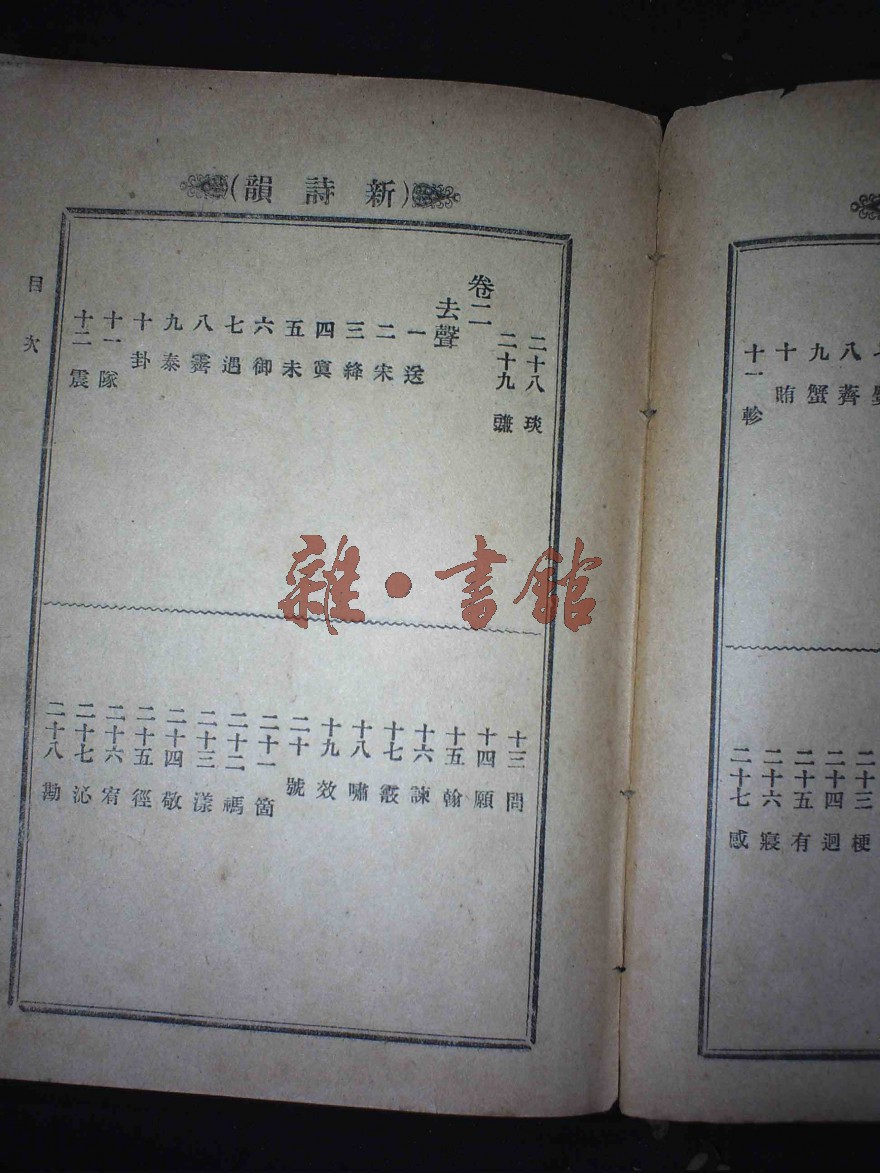 八 薺
九 蟹
十 賄
十一 軫
二十三 梗
二十四 迥
二十五 有
二十六 寢
二十七 感
(新詩韻)
二十八 琰
二十九 豏
卷二
去聲
一 送
二 宋
三 絳
四 寘
五 未
六 御
七 遇
八 霽
九 泰
十 卦
十一 隊
十二 震
十三 問
十四 願
十五 翰
十六 諫
十七 霰
十八 嘯
十九 效
二十 號
二十一 箇
二十二 禡
二十三 漾
二十四 敬
二十五 徑
二十六 宥
二十七 沁
二十八 勘
目次
雜·書館